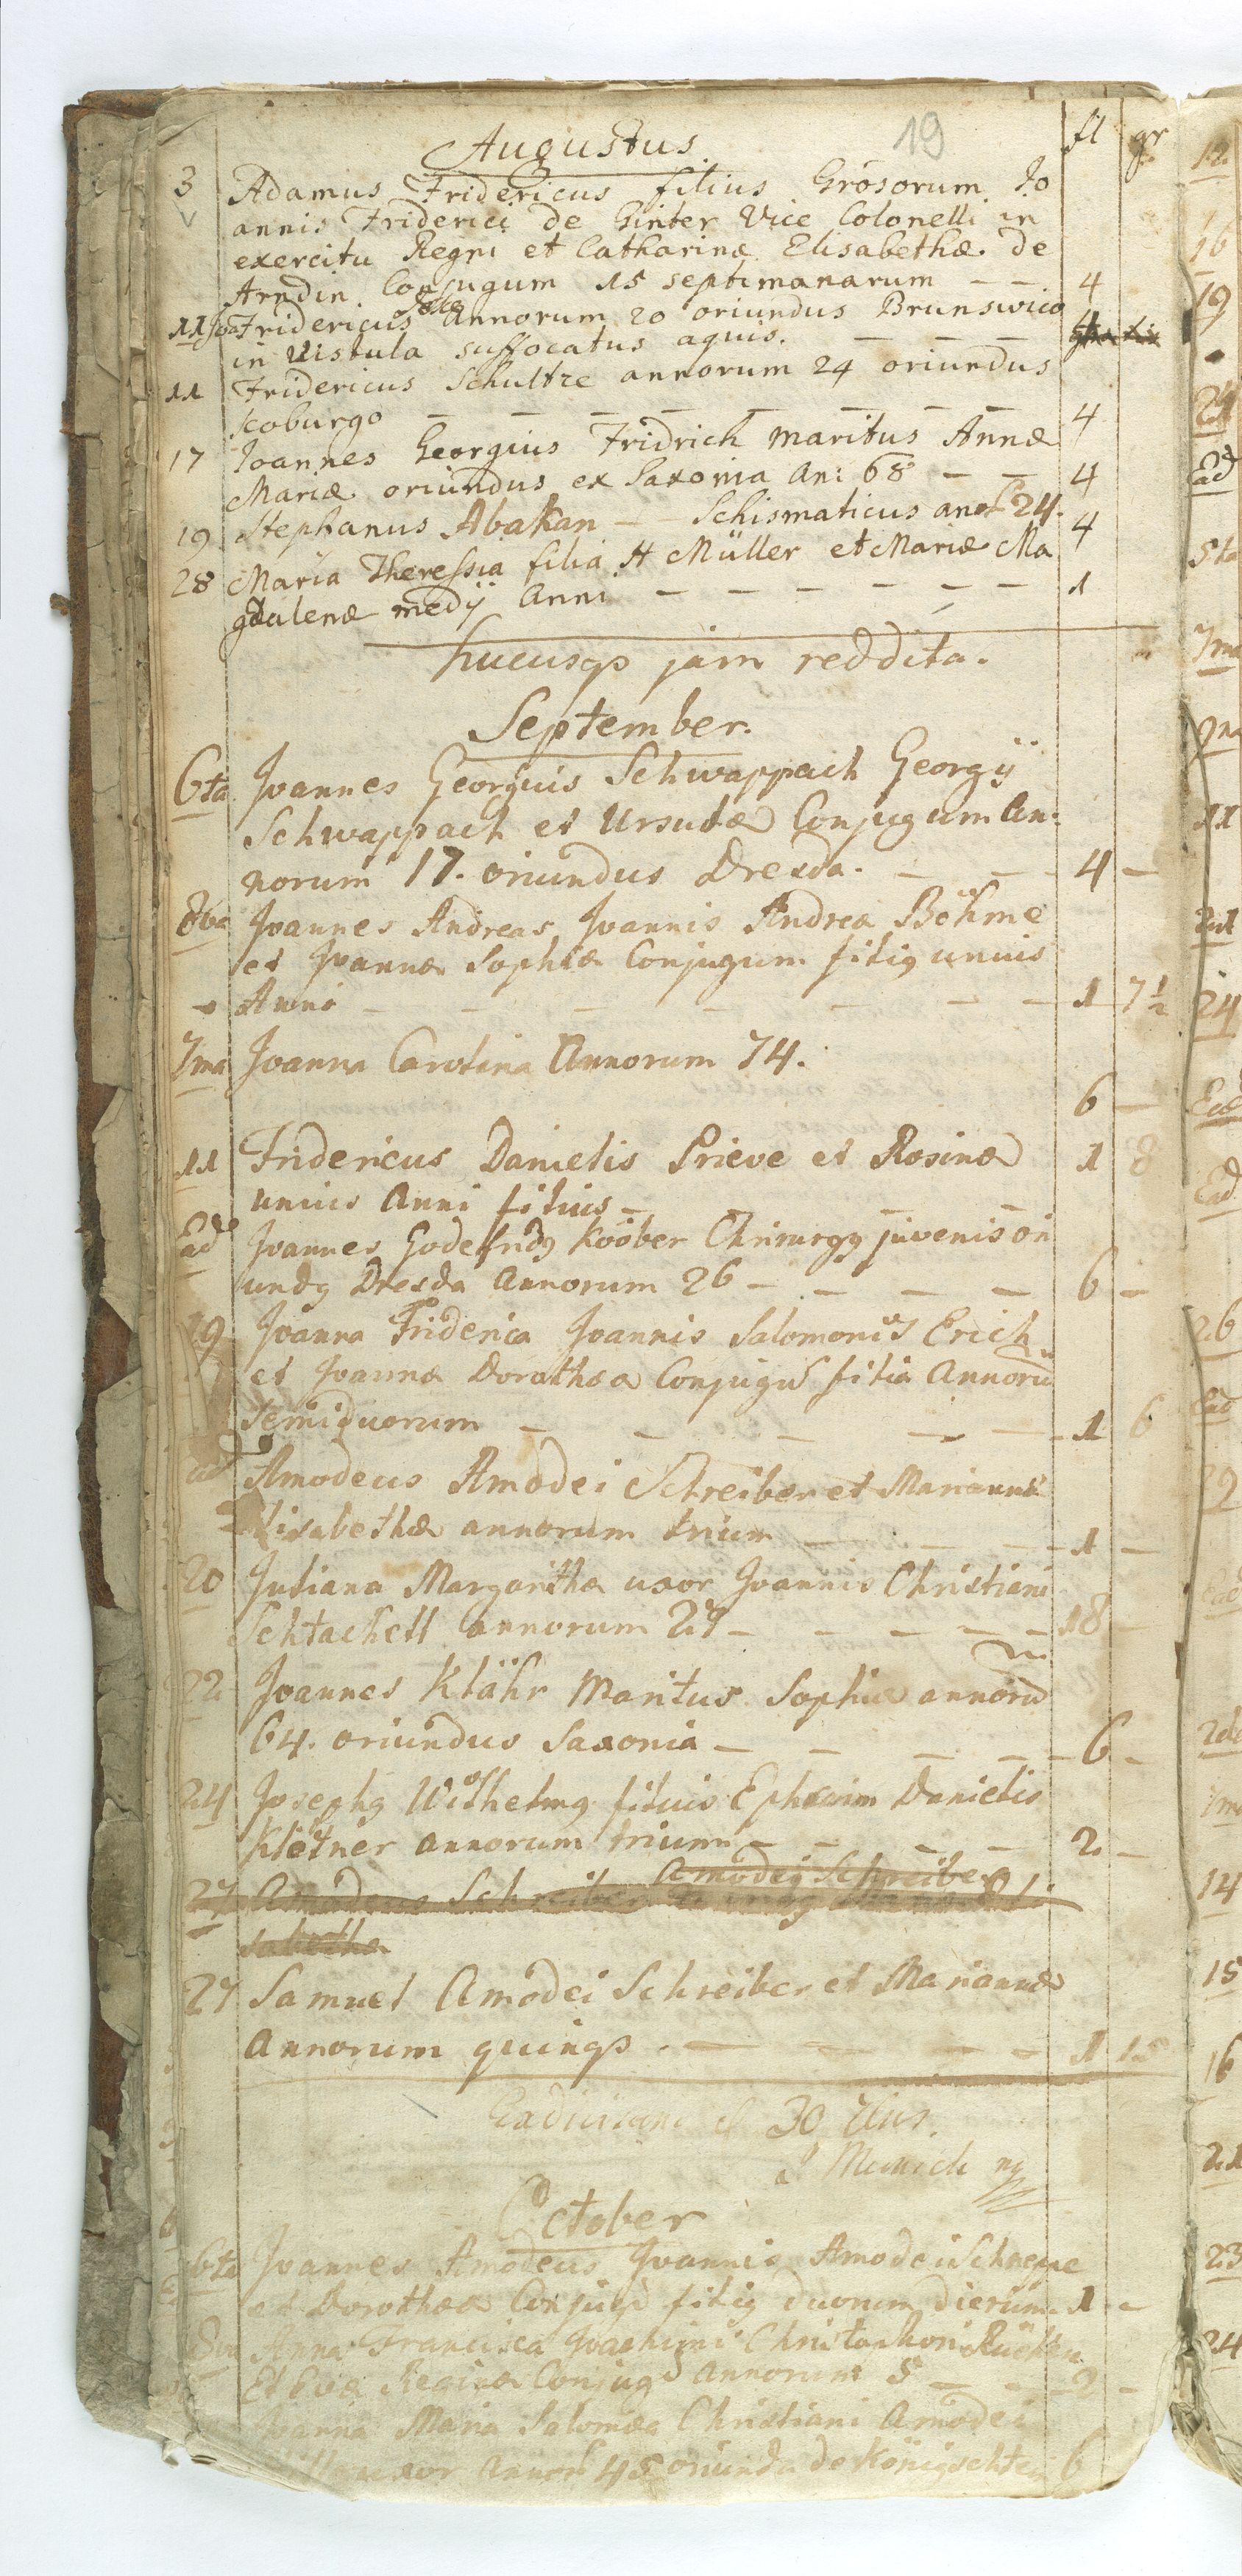 19
fl gr
Augustus
3 Adamus Fridericus filius Grosorum Jo
annis Friderici de Ginter Vice Colonelli in
exercitu Regni et Catharinæ Elisabethæ de
Arndin Conjugum 15 septimanarum — — 4
11 Fridericus Annorum 20 oriundus Brunswico
in Vistula suffocatus aquis. — — —
11 Fridericus Schultze annorum 24 oriundus
Coburgo — — — — — — — 4
17 Joannes Georgius Fridrich maritus Annæ
Mariæ oriundus ex Saxonia An: 68 — — 4
19 Stephanus Abakan — Schismaticus 24. 4
28 Maria Theressia filia H Müller et Mariæ Ma
gdalenæ medÿ Anni — — — — — — 1
hucusqs jam reddita.
September.
6ta Joannes Georgius Schwappach Georgÿ
Schwappach et Ursulæ Conjugum An:
norum 17. oriundus Dresda. — — — 4 —
8va Joannes Andreas Joannis Andreæ Böhme
et Joannæ Sophiæ Conjugum filiq unius
Anni — — — — — — — 1 7½
7ma Joanna Carolina Annorum 74.
6 —
11 Fridericus Danielis Prieve et Rosinæ 1 8
unius Anni filius —
Ead Joannes Godefridq Koöber Chirurgq juvenis ori
undq Dresda Annorum 26 — — — — 6 —
19 Joanna Friderica Joannis Salomonis Erich
et Joannæ Dorotheæ Conjugū filia Annorū
semiduorum — — — — — 1 6
ead Amodeus Amodei Schreiber et Mariannæ
Elisabethæ annorum trium — — — — 1 —
20 Juliana Margaritha uxor Joannis Christiani
Schtachell annorum 27 — — — — — 18 —
22 Joannes Klähr Maritus Sophiæ annorū
64. oriundus Saxonia — — — — 6 —
24 Josephq Wilhelmq filius Ephraim Danielis
Kletner annorum trium — — — — 2 —
Amodei Schreiber
27 Amodeus Schreiber
sabethæ
27 Samuel Amodei Schreiber et Mariannæ
Annorum quinqs — — — — 1
30
October
6ta Joannes Amodeus Joannis Amodei
et Dorotheæ Conjugū filiq duorum dierum 1 —
8va Anna Francisca Joachimi Christophori
Et Evæ Reginæ Conjugū Annorum 5 — — 2 —
Joanna Maria Salomea Christiani Amodei
uxor Annor 45 oriunda de 6